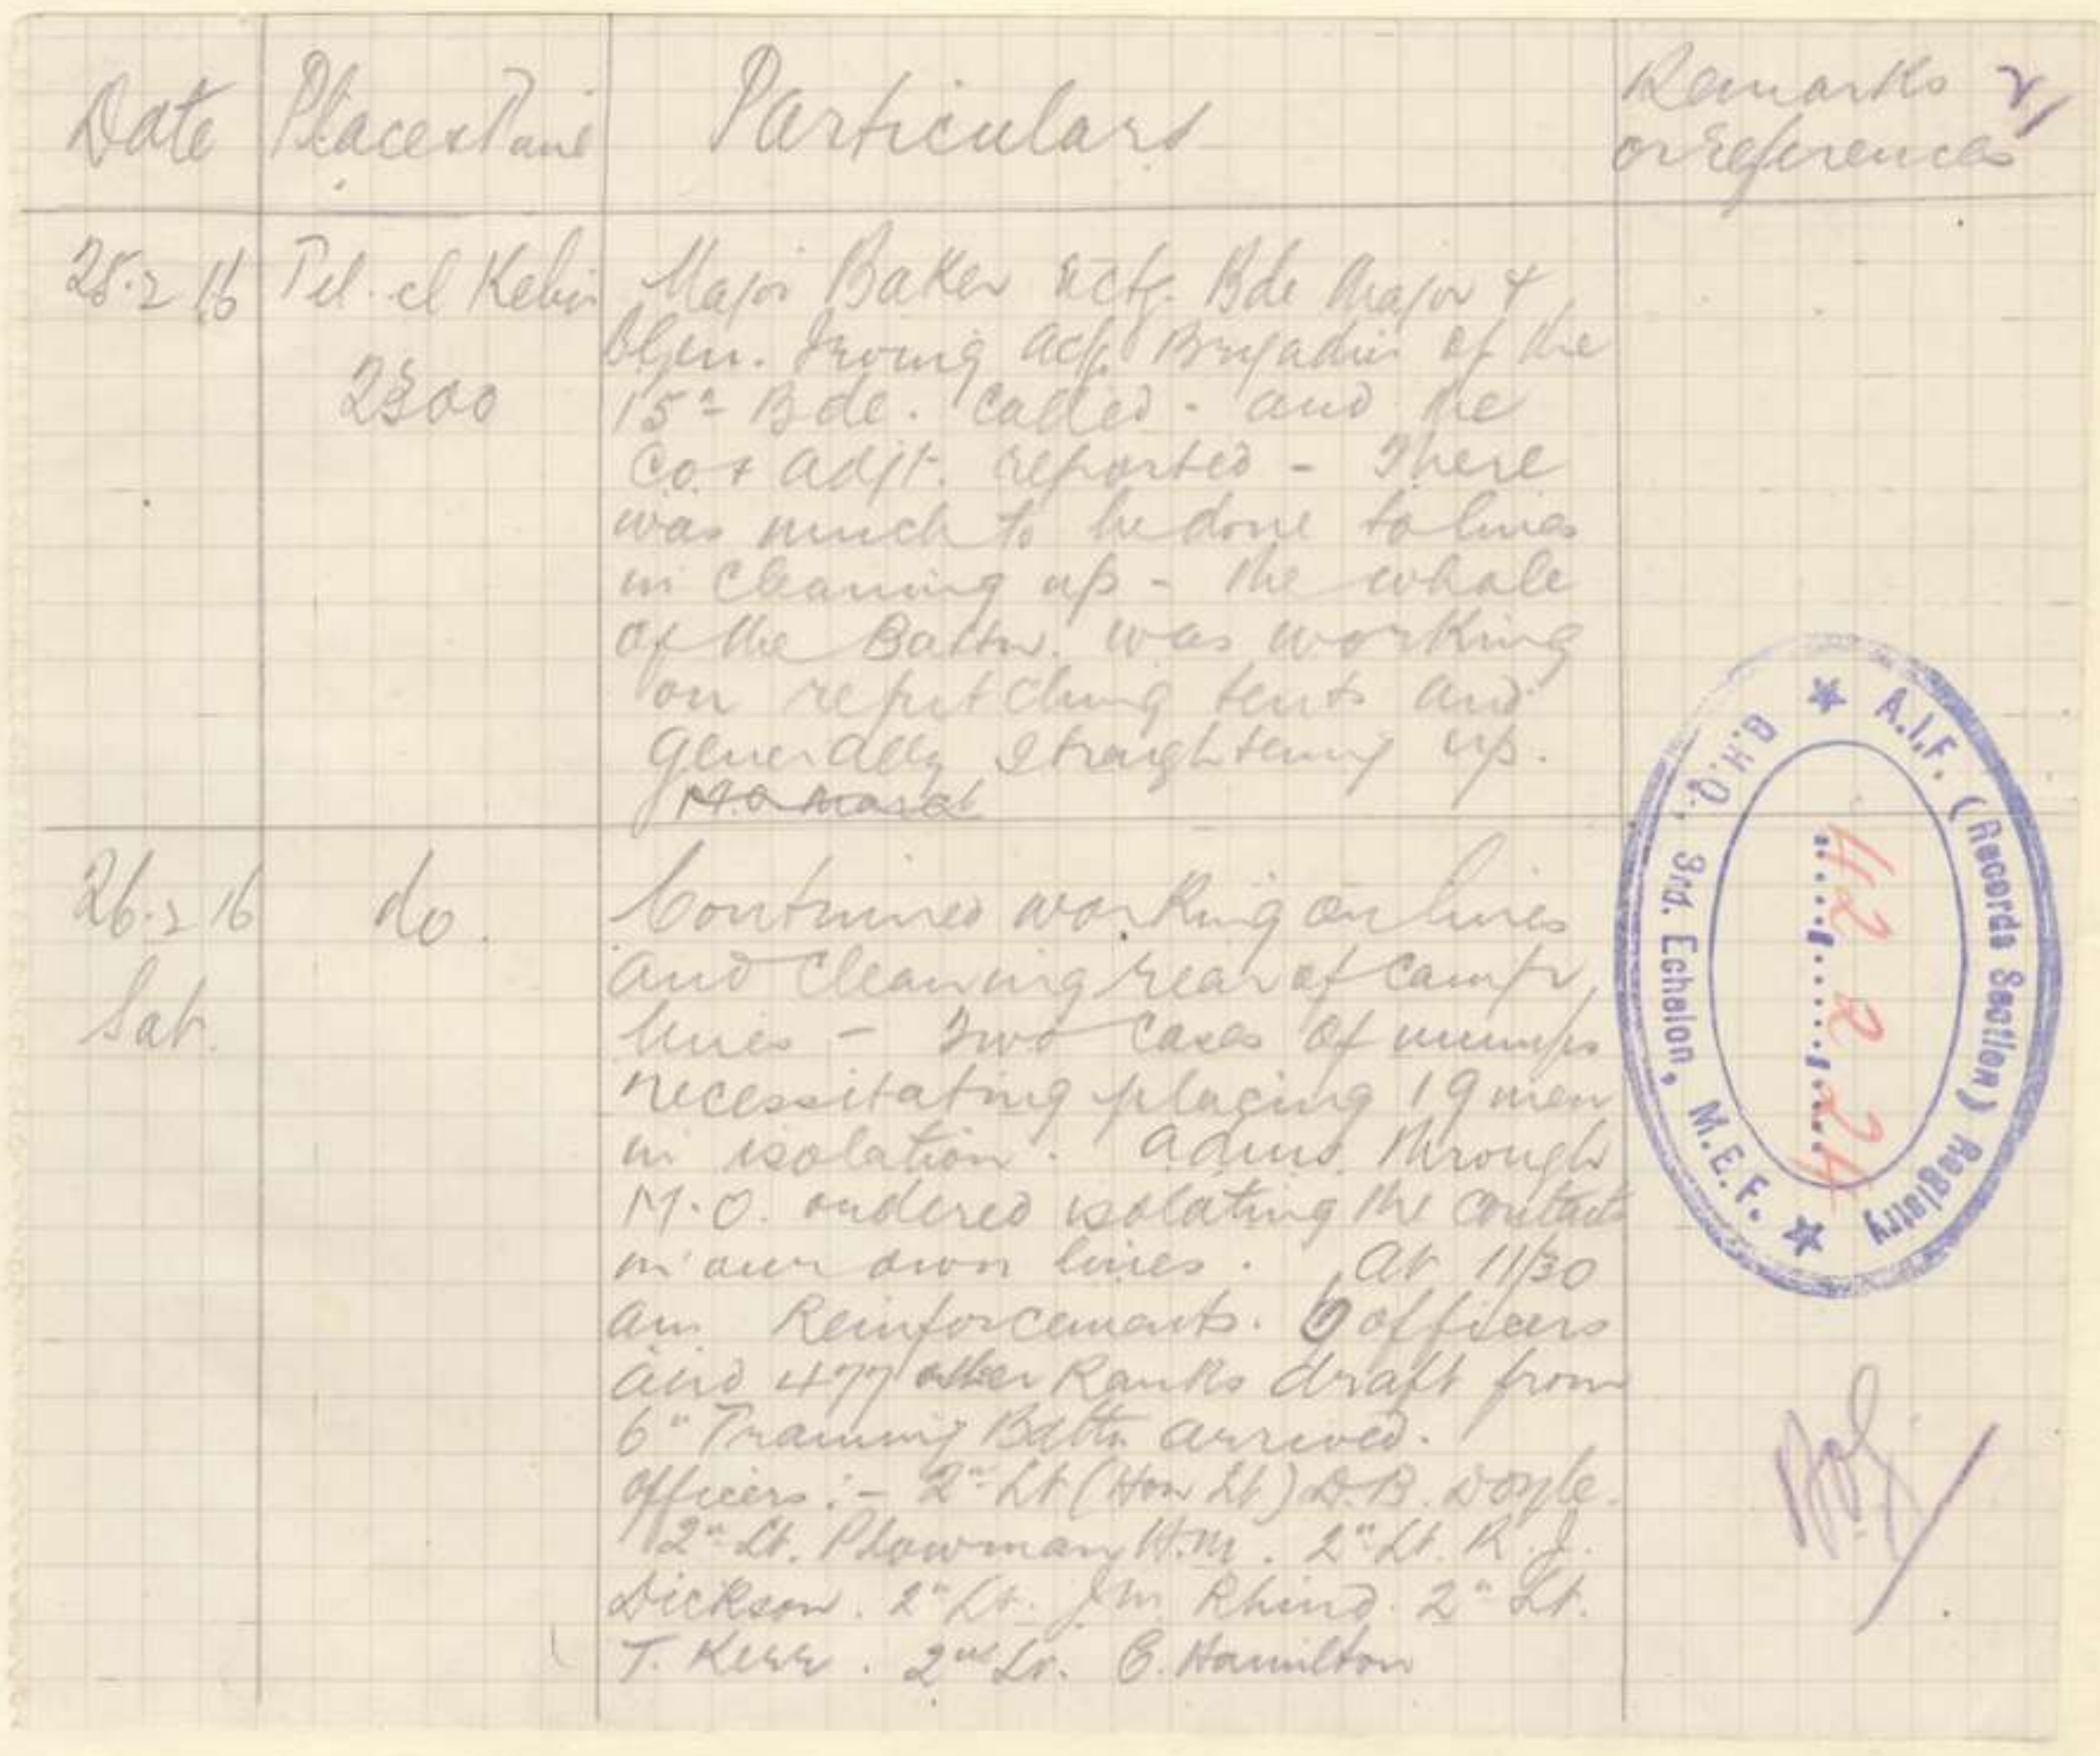 Date Place & Time Particulars Remarks
or references
25.2.16 Tel. el Kebir Major Baker actg. Bde Major &
BGen. Irving actg. Brigadier of the
2300 15th Bde. called - and the
CO & Adjt. reported - There
was much to be done to lines
in cleaning up - the whole
of the Battn. was working
on repitching tents and
generally straightening up.
26.2.16 do. Continued working on lines
and cleaning rear of camp
Sat. lines - Two cases of mumps
necessitating placing 19 men
in isolation. Adms. through
M.O. ordered isolating the contacts
in our own lines. At 11/30
am Reinforcements. 6 officers
and 477 other Ranks draft from
6" Training Battn arrived.
Officers :- 2nd Lt (Hon Lt) D.B. Doyle.
2nd Lt. Plowman H.M. 2" Lt. R.J.
Dickson. 2" Lt. J.M. Rhind. 2" Lt.
T. Kerr. 2nd Lt. C. Hamilton
A.I.F. (Records Section) Registry
G.H.Q., 3rd. Echelon, M.E.F.